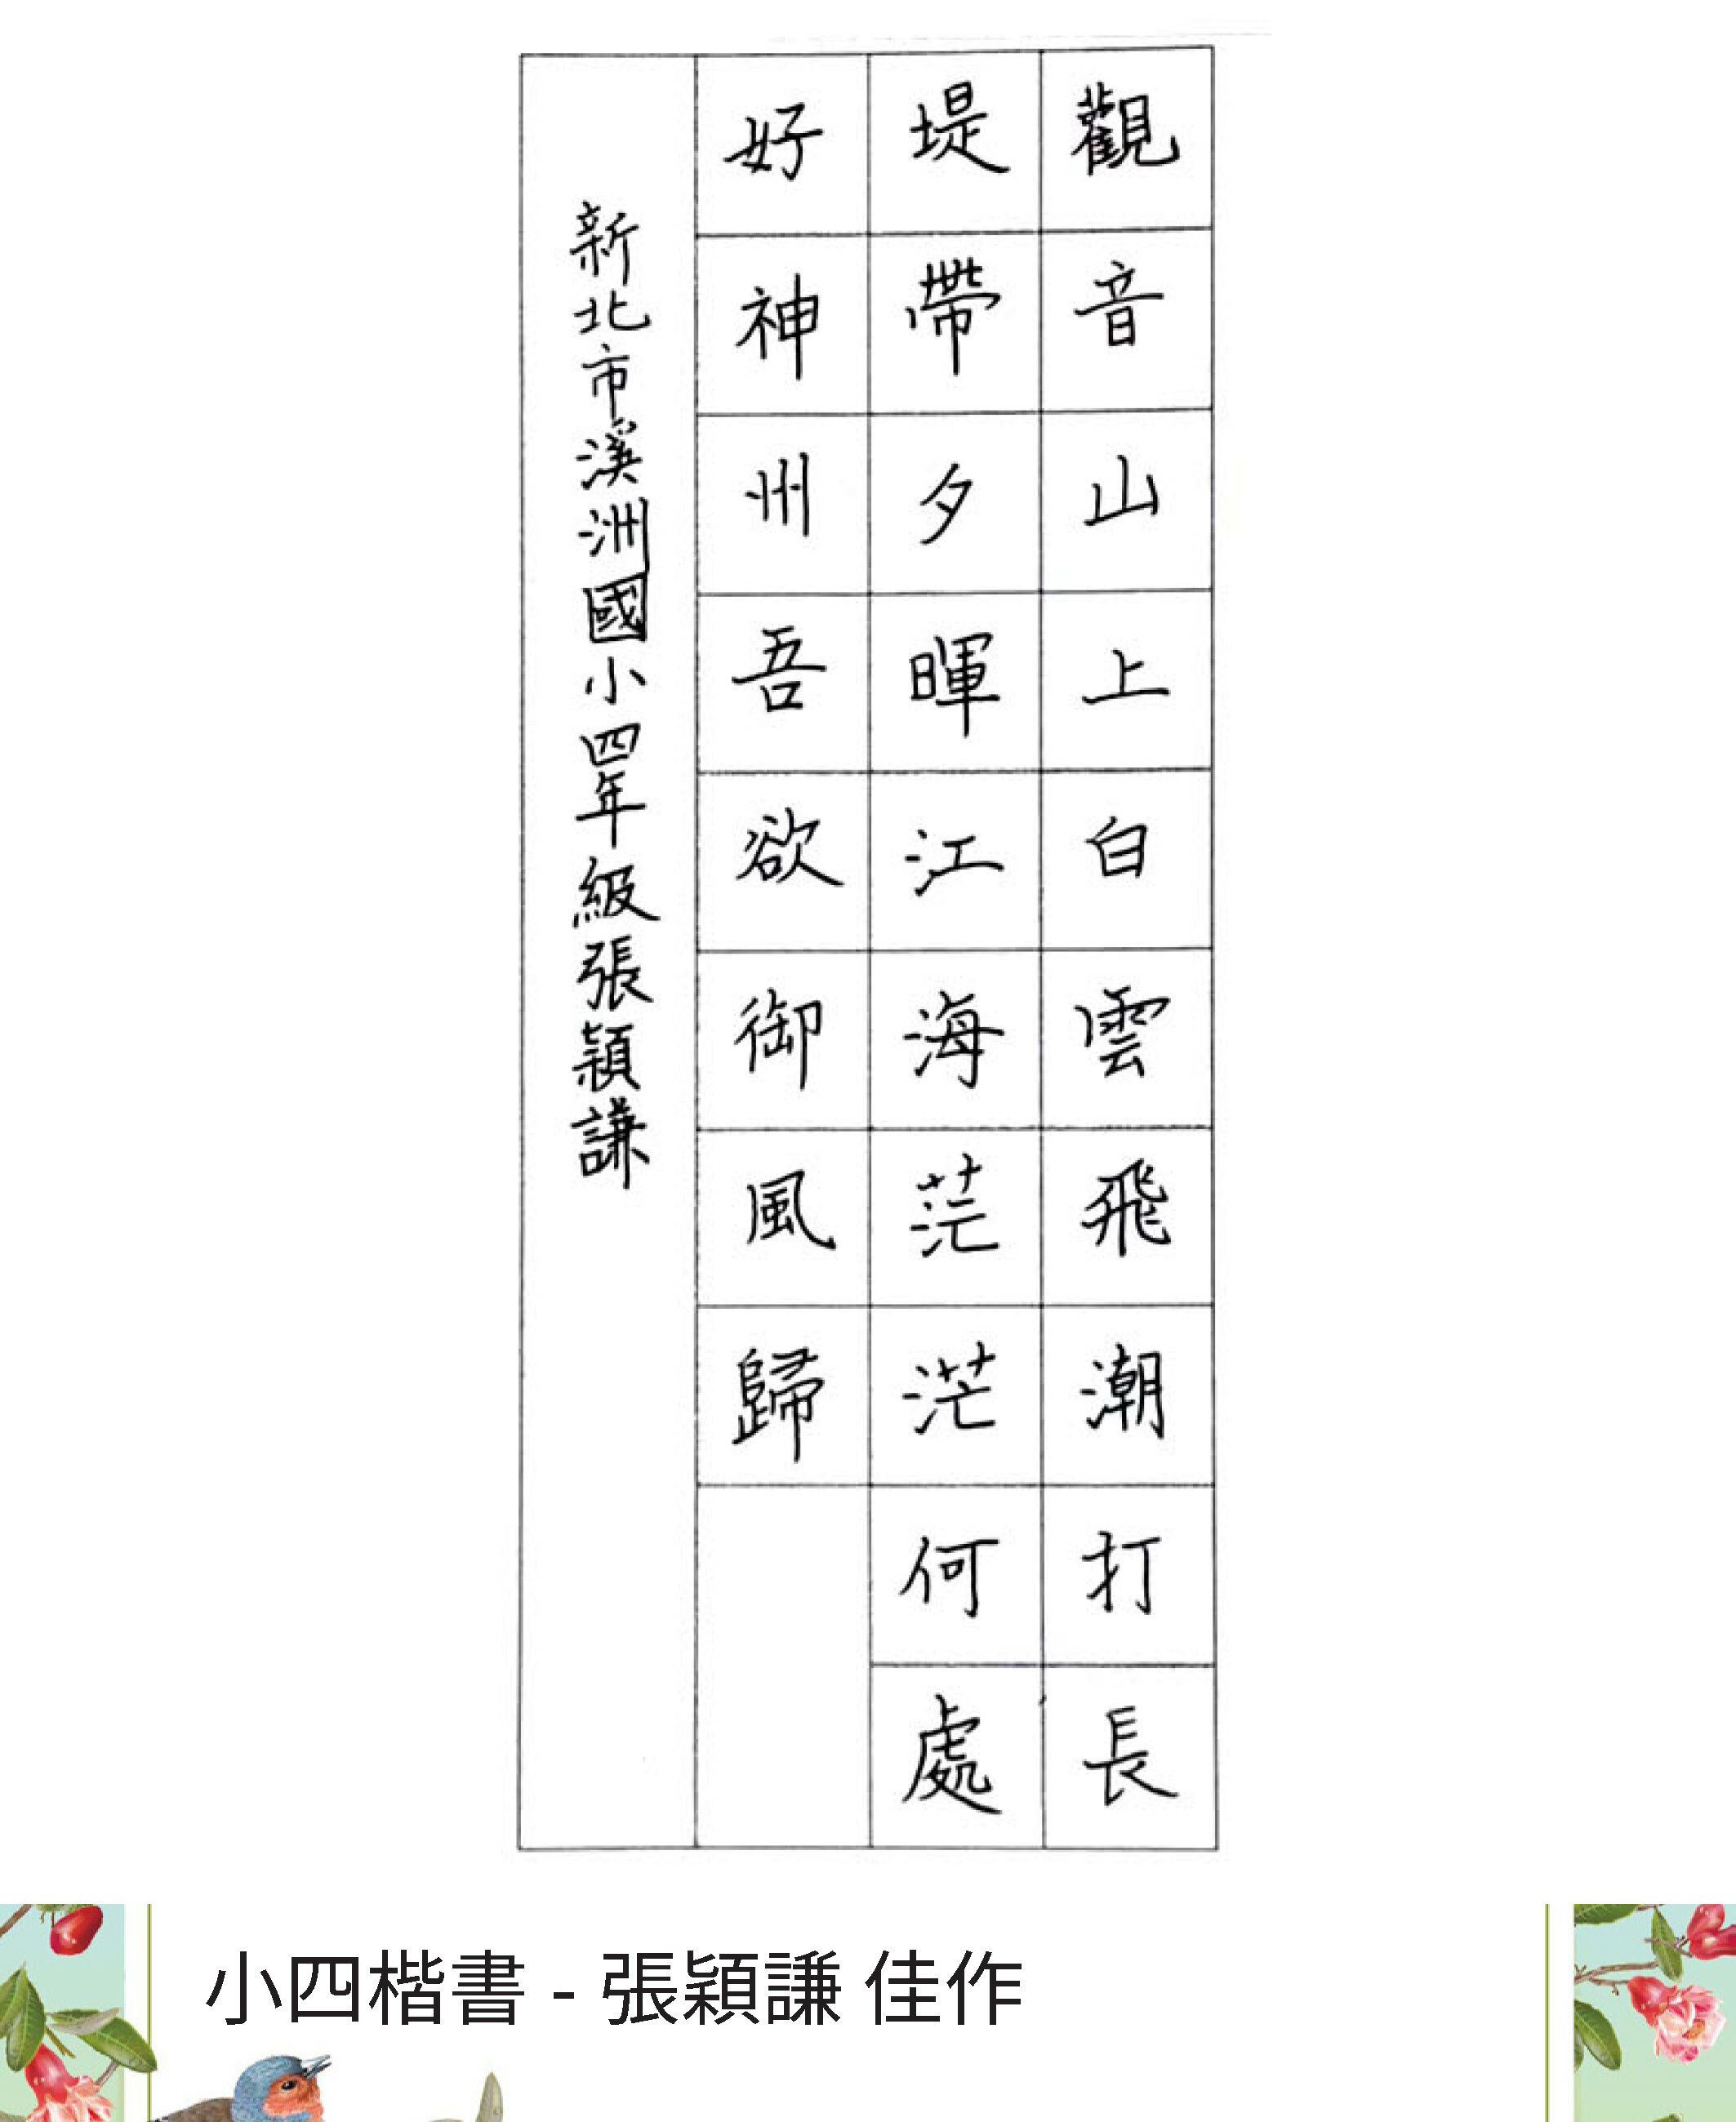 觀音山上白雲飛潮打長
堤帶夕暉江海茫茫何處
好神州吾欲御風歸
新北市溪洲國小四年級張穎謙
小四楷書 - 張穎謙 佳作